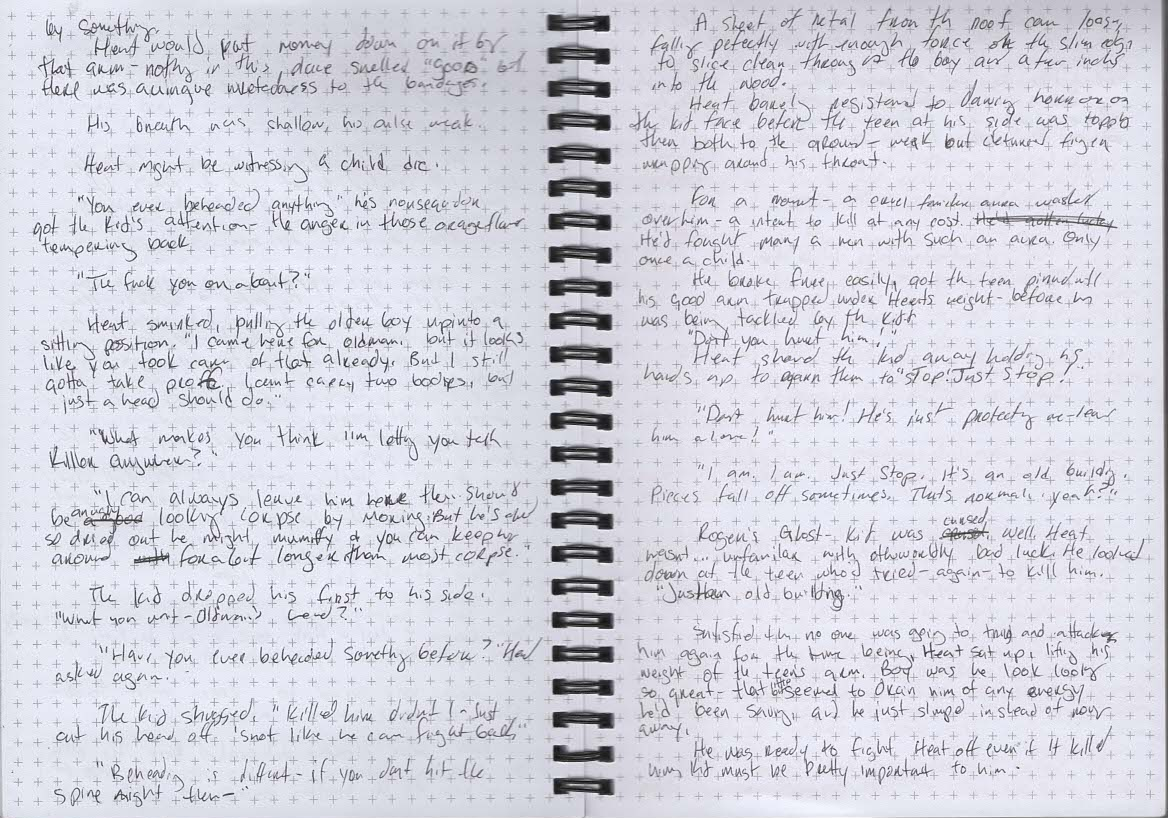 by something.
Heat would put money down on it by
that arm - nothy in this dave smelled "good" but
there was aunique wretedness to the bandages.
His breath was shallow, his pulse weak.
Heat might be witnessing a child die.
"You ever beheaded anything" he's nonsequador
got the kid's attention - the anger in those orange
tempering back
"The fuck you on about?"
Heat smirked, pulling the older boy up into a
sitting position. "I came here for oldman, but it looks
like you took care of that already. But I still
gotta take proof, I cant carry two bodies, but
just a head should do."
"What makes you think I'm letty you teth
Killer anywhere?"
"I can always leave him here then. Should
be anugly looking corpse by morning. But he's
so dried out he might mummify & you can keep
around for a lot longer than most corpse."
The kid dropped his first to his side.
"What you want - Oldman's head?"
"Have you ever beheaded somethy before?" Heat
asked again.
The kid shrugged, "Killed him didn't I - Just
cut his head off 'snot like he can fight back"
"Beheading is diffent - if you dont hit the
spine right then -"
A sheet of metal from th roof cam loose,
falling perfectly with enough force on the slim edge
to slice clean through the boy and a few inchs
into the wood.
Heat barely resistered to dawing horror on
the kid face before the teen at his side was toppls
them both to the ground - weak but fingers
wrapping around his throat.
For a moment - a aura washed
over him - a intent to kill at any cost.
He'd fought many a men with such an aura. Only
once a child.
He broke free, easily, got the teen pinned
his good arm trapped under Heats weight - before he
was being tackled by th kid
"Dont you hurt him,"
Heat shoved the kid away holding his
hands up to them to "Stop! Just Stop!"
"Dont hurt him! He's just protecty me - leav
him alone!"
"I am. I am. Just Stop. It's an old buildig.
Pieces fall off sometimes. Thats normal, yeah?"
Rogen's Ghost - kit was cursed well. Heat
wasnt... unfamilar with othworldly bad luck. He looked
down at the teen who'd tried - again - to kill him.
"Just an old building."
Satisfied th no one was going to and attack
him again for the time being, Heat sat up, lifty his
weight of the teen's arm. Boy was he look looky
so great - that little seemed to drain him of any energy
he'd been saving, and he just slumped instead of
away.
He was ready to fight Heat off even if it killed
him, kid must be pretty important to him.